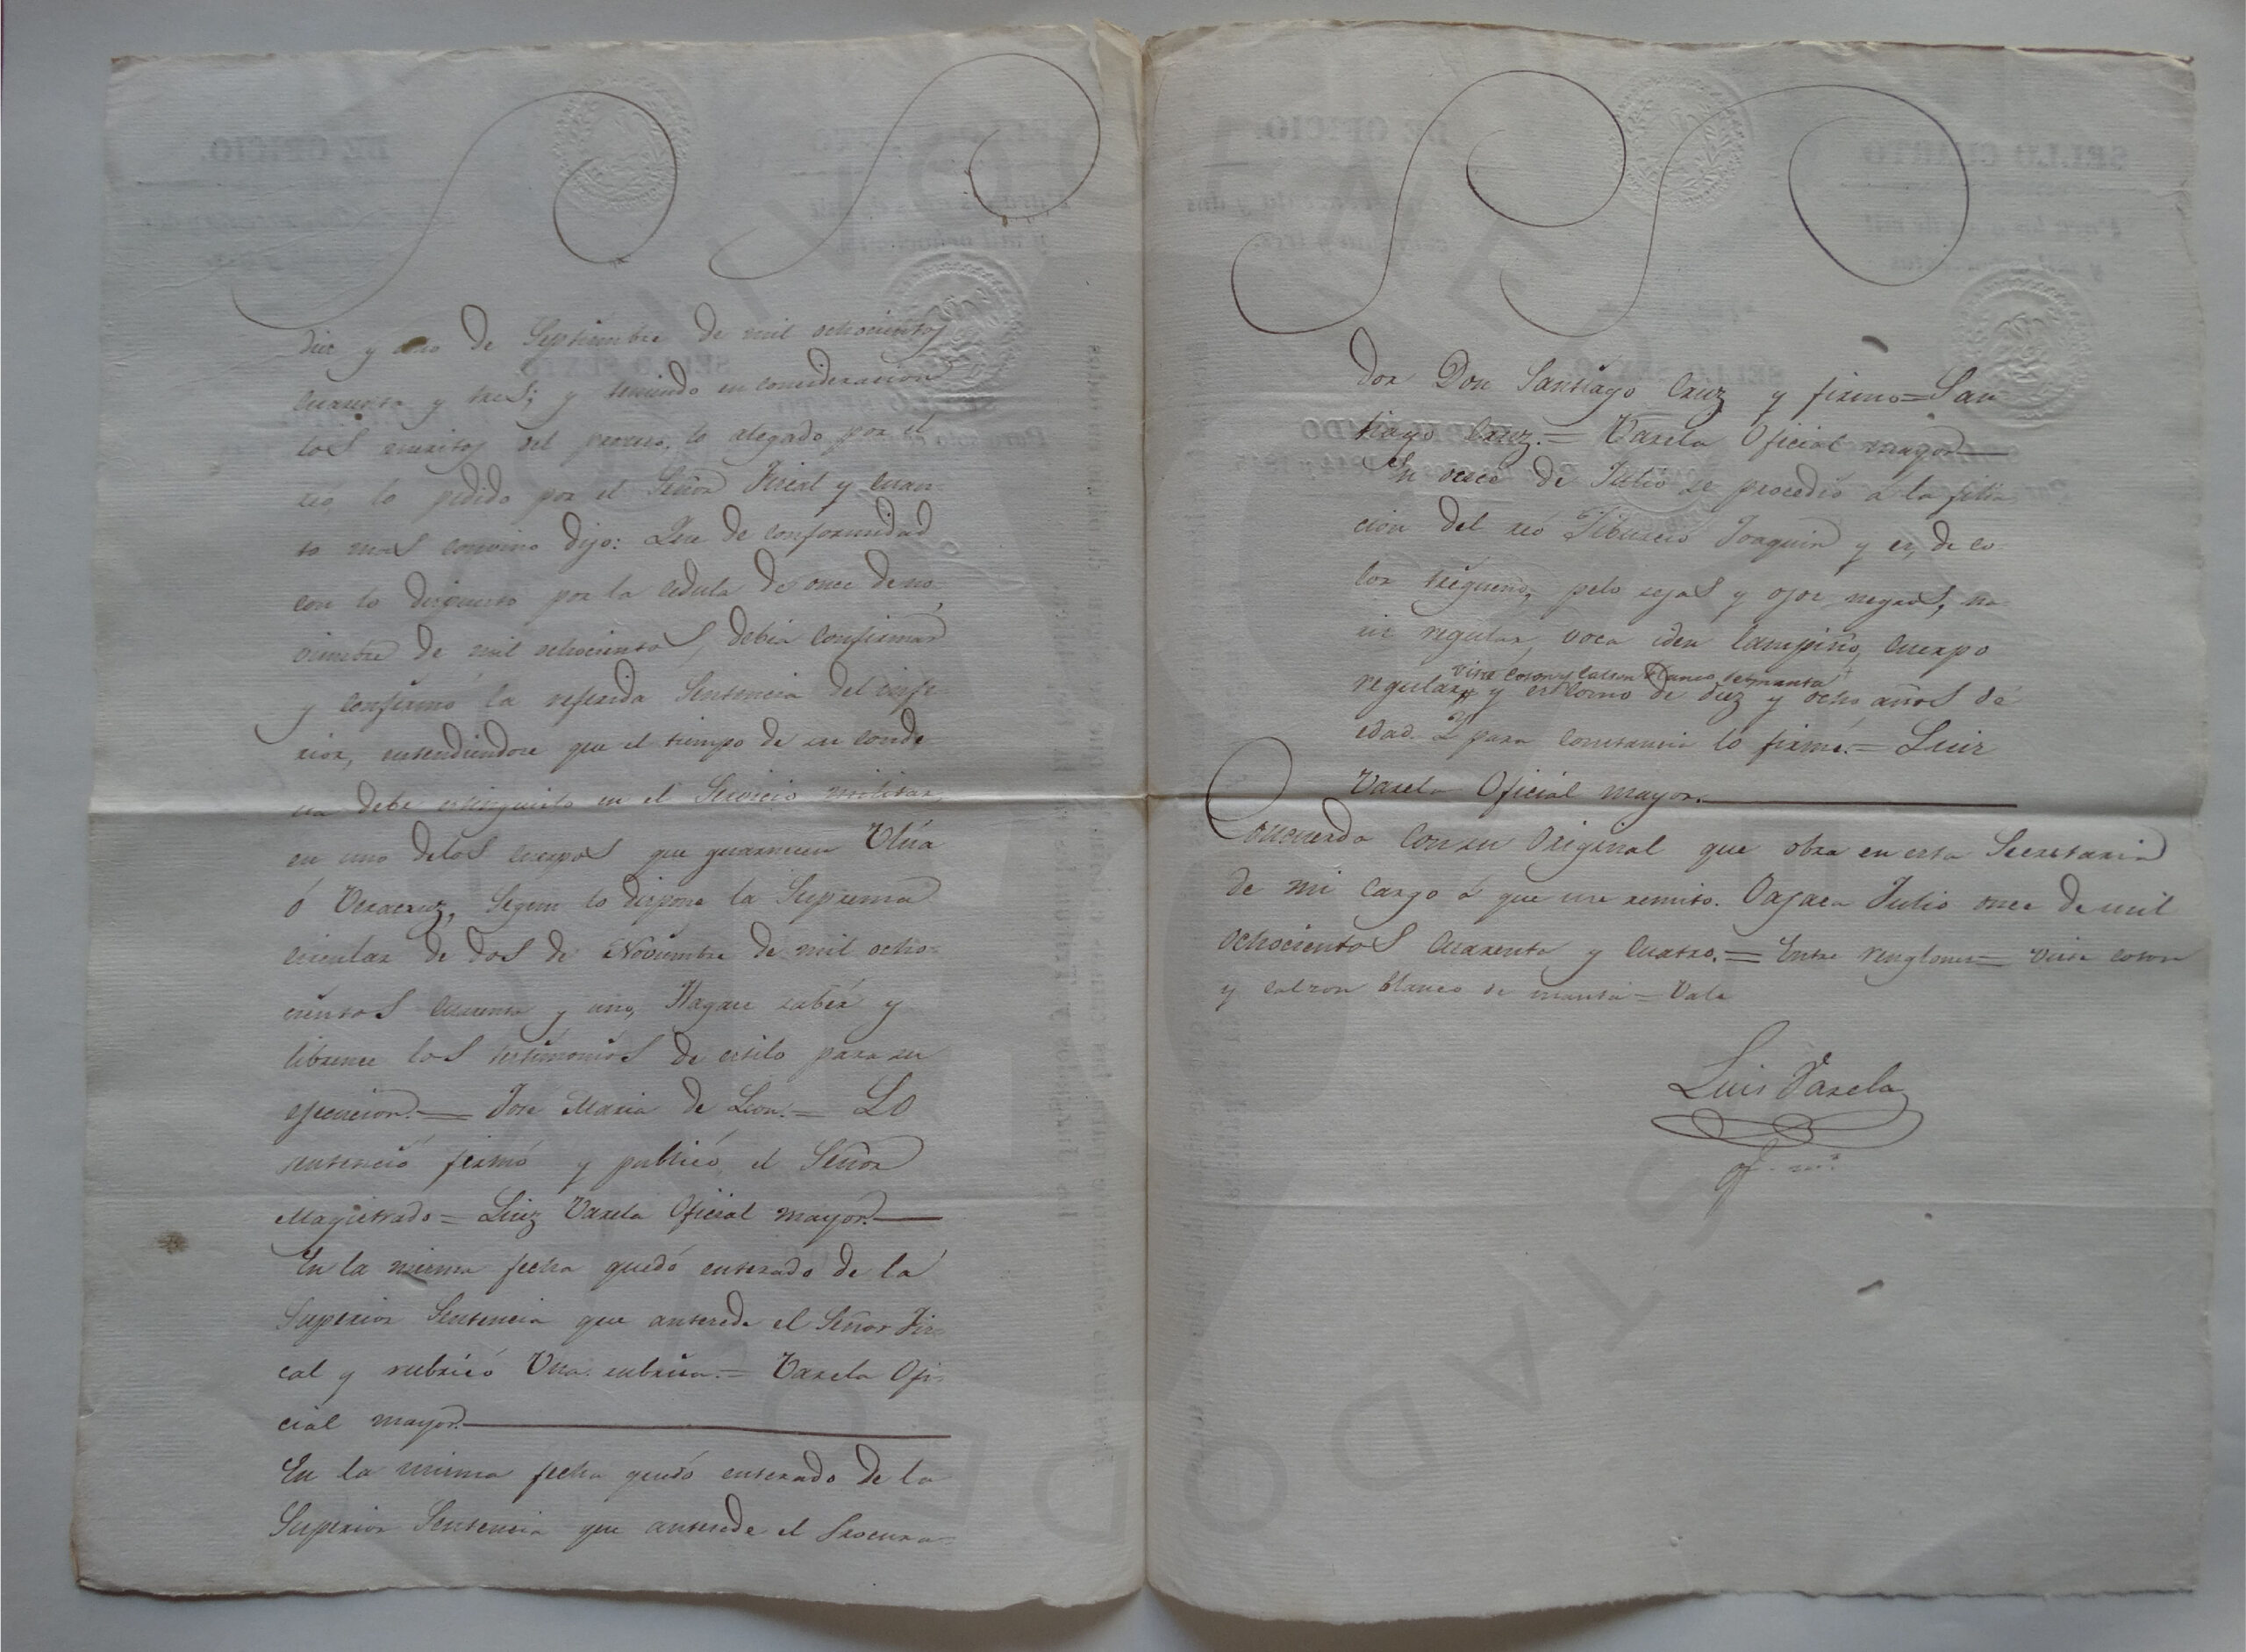 diez y ocho de Septiembre de mil ochocientos
cuarenta y tres; y teniendo en consideracion
los meritos del proceso, lo alegado por el
reó, lo pedido por el Señor Fiscal y cuan-
to mas convino dijo: Que de conformidad
con lo dispuesto por la cedula de once de no-
viembre de mil ochocientos, debia confirmar
y confirmó la referida Sentencia del infe-
rior, entendiendose que el tiempo de su conde-
na debe extinguirlo en el Servicio militar,
en uno delos cuerpos que guarnecen Ulúa
ó Veracruz, segun lo dispone la Suprema
circular de dos de Noviembre de mil ocho-
cientos cuarenta y uno, Hagase saber y
librense los testimonios de estilo para su
ejecucion.= José Maria de Leon.= Lo
sentenció firmó y publicó el Señor
Magistrado= Luiz Varela Oficial mayor.
En la misma fecha quedó enterado de la
Superior Sentencia que antesede el Señor Fis-
cal y rubricó Una rubrica.= Varela Ofi-
cial mayor.
En la misma fecha quedó enterado de la
Superior Sentencia que antesede el Procura-
dor Don Santiago Cruz y firmo= San-
tiago Cruz.= Varela Oficial mayor.
En oce de Julio se procedió á la filia-
cion del reó Tiburcio Joaquin y es de co-
lor trigueño, pelo sejas y ojos negros, na-
riz regular, voca iden lampiño, cuerpo
viste coton y calzon blanco de manta
regular, y es como de diez y ocho años de
edad. Y para constancia lo firmé.= Luis
Varela Oficial mayor.
Concuerda con su Original que obra en esta Secretaria
de mi cargo á que me remito. Oajaca Julio once de mil
ochocientos cuarenta y cuatro.= Entre renglones= viste coton
y calzon blanco de manta= Vale
Luis Varela
Of. mr.